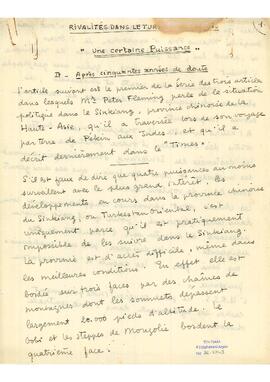 RIVALITÉS DANS LE TUR
" Une certaine Puissance "
I - Après cinquantes années de doute
L'article suivant est le premier de la série des trois articles
dans lesquels Mr. Peter Fleming parle de la situation
politique dans le Sinkiang, province chinoise de la
Haute-Asie, qu'il a traversée lors de son voyage
par terre de Pékin aux Indes, et qu'il a
décrit dernièrement dans le "Times".
S'il est peu de dire que quatre puissances au moins
surveillent avec le plus grand intérêt les
développements en cours dans la province chinoise
du Sinkiang, ou Turkestan Oriental, c'est
uniquement parce qu'il est pratiquement
impossible de les suivre dans le Sinkiang.
La province est d'accès difficile, même dans
les meilleures conditions. En effet elle est
bordée sur trois faces par des chaînes de
montagnes dont les sommets dépassent
largement 20.000 pieds d'altitude. Le
Gobi et les steppes de Mongolie bordent la
quatrième face.